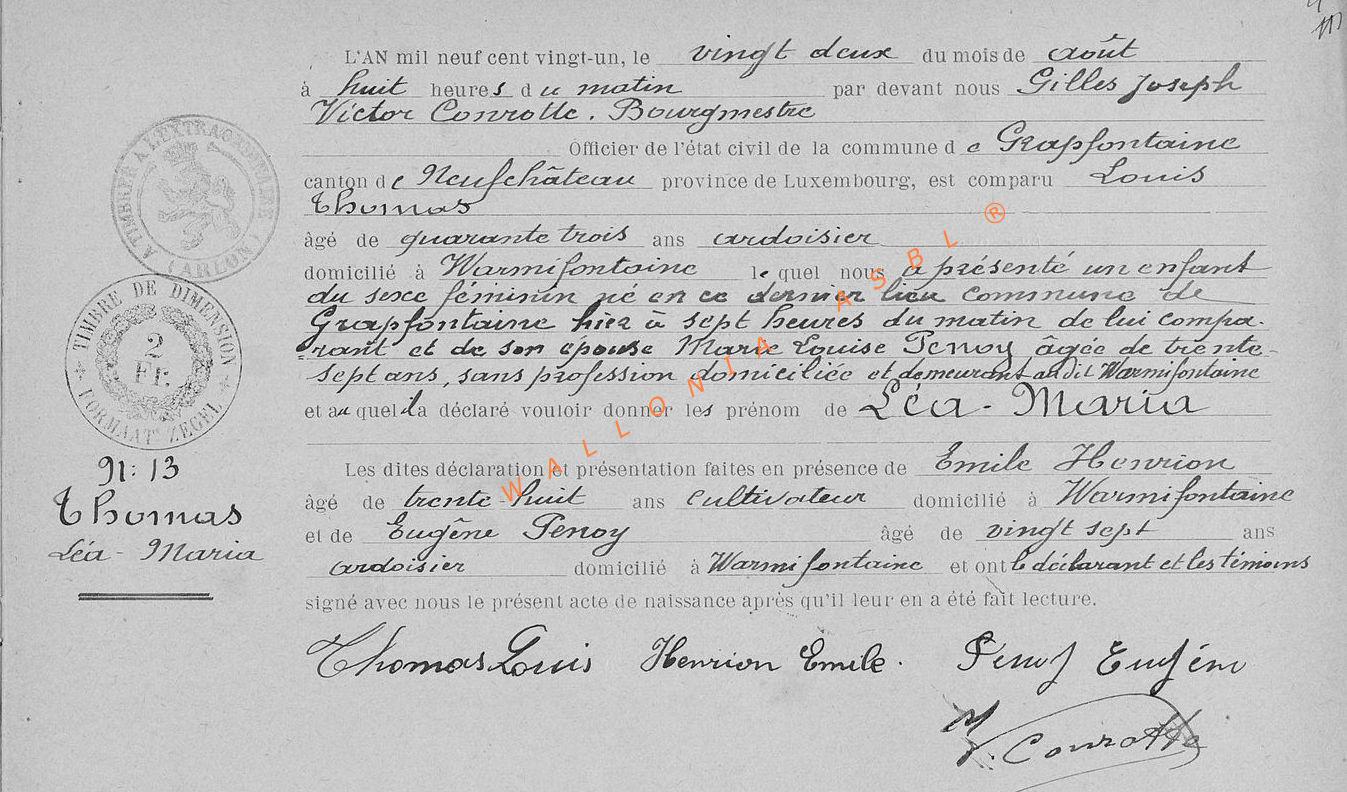 L'AN mil neuf cent vingt-un, le vingt deux du mois de août
à huit heures du matin par devant nous Gilles Joseph
Victor Conrotte. Bourgmestre
Officier de l'état civil de la commune de Grapfontaine
canton de Neufchâteau province de Luxembourg, est comparu Louis
Thomas
âgé de quarante trois ans ardoisier
domicilié à Warmifontaine lequel nous a présenté un enfant
du sexe féminin né en ce dernier lieu commune de
Grapfontaine hier à sept heures du matin de lui compa-
rant et de son épouse Marie Louise Penoy, âgée de trente-
sept ans, sans profession domiciliée et demeurant audit Warmifontaine
et auquel il a déclaré vouloir donner les prénom de Léa-Maria
Les dites déclaration et présentation faites en présence de Emile Henrion
âgé de trente-huit ans cultivateur domicilié à Warmifontaine
et de Eugêne Penoy âgé de vingt sept ans
ardoisier domicilié à Warmifontaine et ont le déclarant et les témoins
signé avec nous le présent acte de naissance après qu'il leur en a été fait lecture.
Thomas Louis Henrion Emile. Penoy Eugéne
V. Conrotte
A TIMBRER À L'EXTRAORDINAIRE
(ARLON)
TIMBRE DE DIMENSION
2
FR.
FORMAAT ZEGEL
N: 13
Thomas
Léa-Maria
WALLONIA ASBL ®